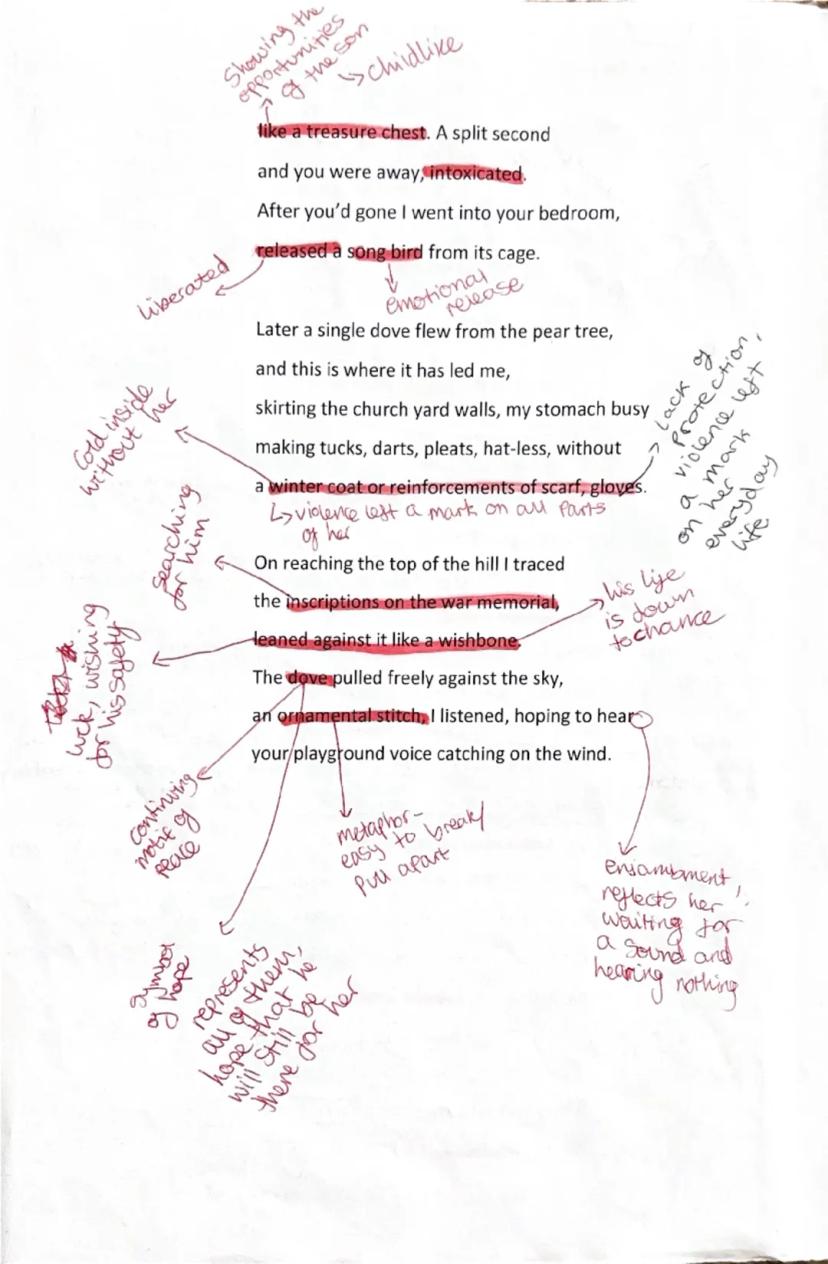 Showing the
opportunities
of the son
↳ childlike
like a treasure chest. A split second
and you were away, intoxicated.
After you'd gone I went into your bedroom,
released a song bird from its cage.
liberated
emotional
release
Later a single dove flew from the pear tree,
and this is where it has led me,
skirting the church yard walls, my stomach busy
making tucks, darts, pleats, hat-less, without
a winter coat or reinforcements of scarf, gloves.
Cold inside
without her
Lack of
protection,
violence left
a mark
on her
everyday
life
↳ violence left a mark on all parts
of her
On reaching the top of the hill I traced
the inscriptions on the war memorial,
leaned against it like a wishbone.
The dove pulled freely against the sky,
an ornamental stitch, I listened, hoping to hear
your playground voice catching on the wind.
searching
for him
his life
is down
to chance
luck, wishing
for his safety
continuing
motif of
peace
metaphor-
easy to break/
pull apart
enjambment
reflects her
waiting for
a sound and
hearing nothing
symbol
of hope
represents
all of them,
hope that he
will still be
there for her